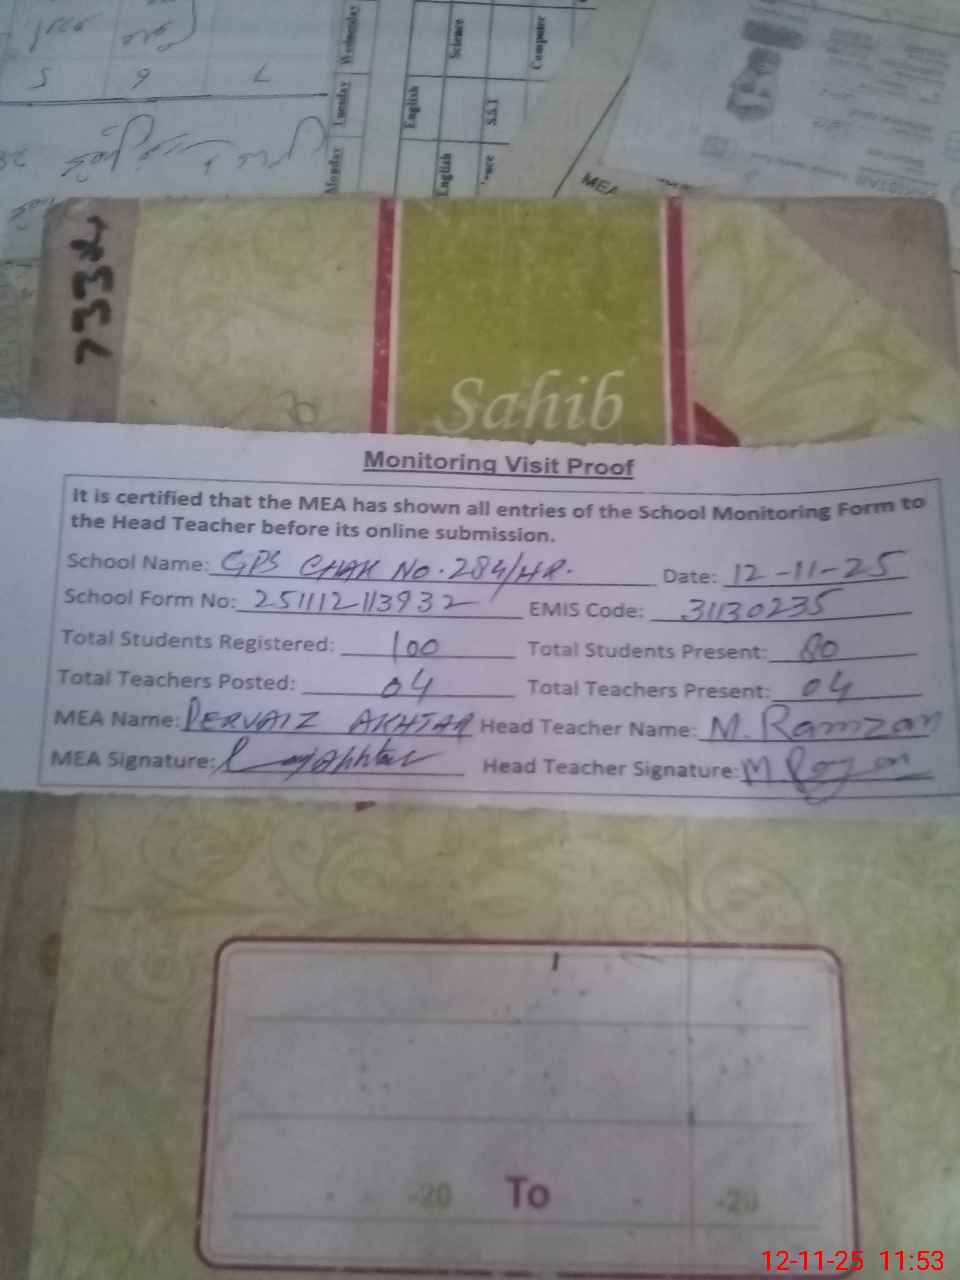 5 6 7
Monday Tuesday Wednesday
English English Science
S.S.T Computer
MEA
7332
Sahib
Monitoring Visit Proof
It is certified that the MEA has shown all entries of the School Monitoring Form to
the Head Teacher before its online submission.
School Name: GPS CHAK No. 284/HR. Date: 12-11-25
School Form No: 251112113932 EMIS Code: 31130235
Total Students Registered: 100 Total Students Present: 80
Total Teachers Posted: 04 Total Teachers Present: 04
MEA Name: PERVAIZ AKHTAR Head Teacher Name: M. Ramzan
MEA Signature: Head Teacher Signature:
-20 To -20
12-11-25 11:53